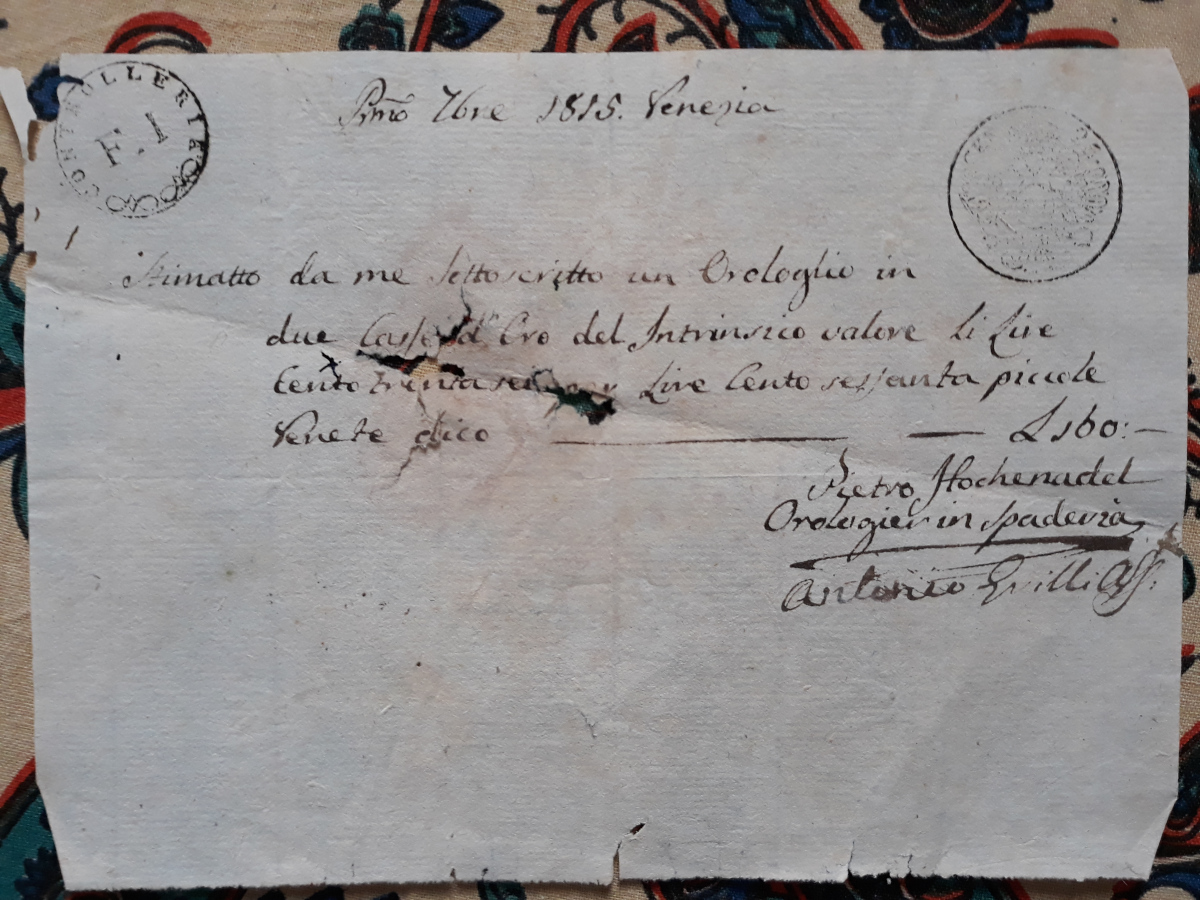 CONTROLLERIA
F. 1
Pmõ 7bre 1815. Venezia
Stimatto da me sottoscritto un Orologlio in
due Casse d' Oro del Intrinsico valore li Lire
Cento trenta sei Lire Cento sessanta piccole
Venete dico L 160:
Pietro Hochenadel
Orologier in Spaderia
Antonio